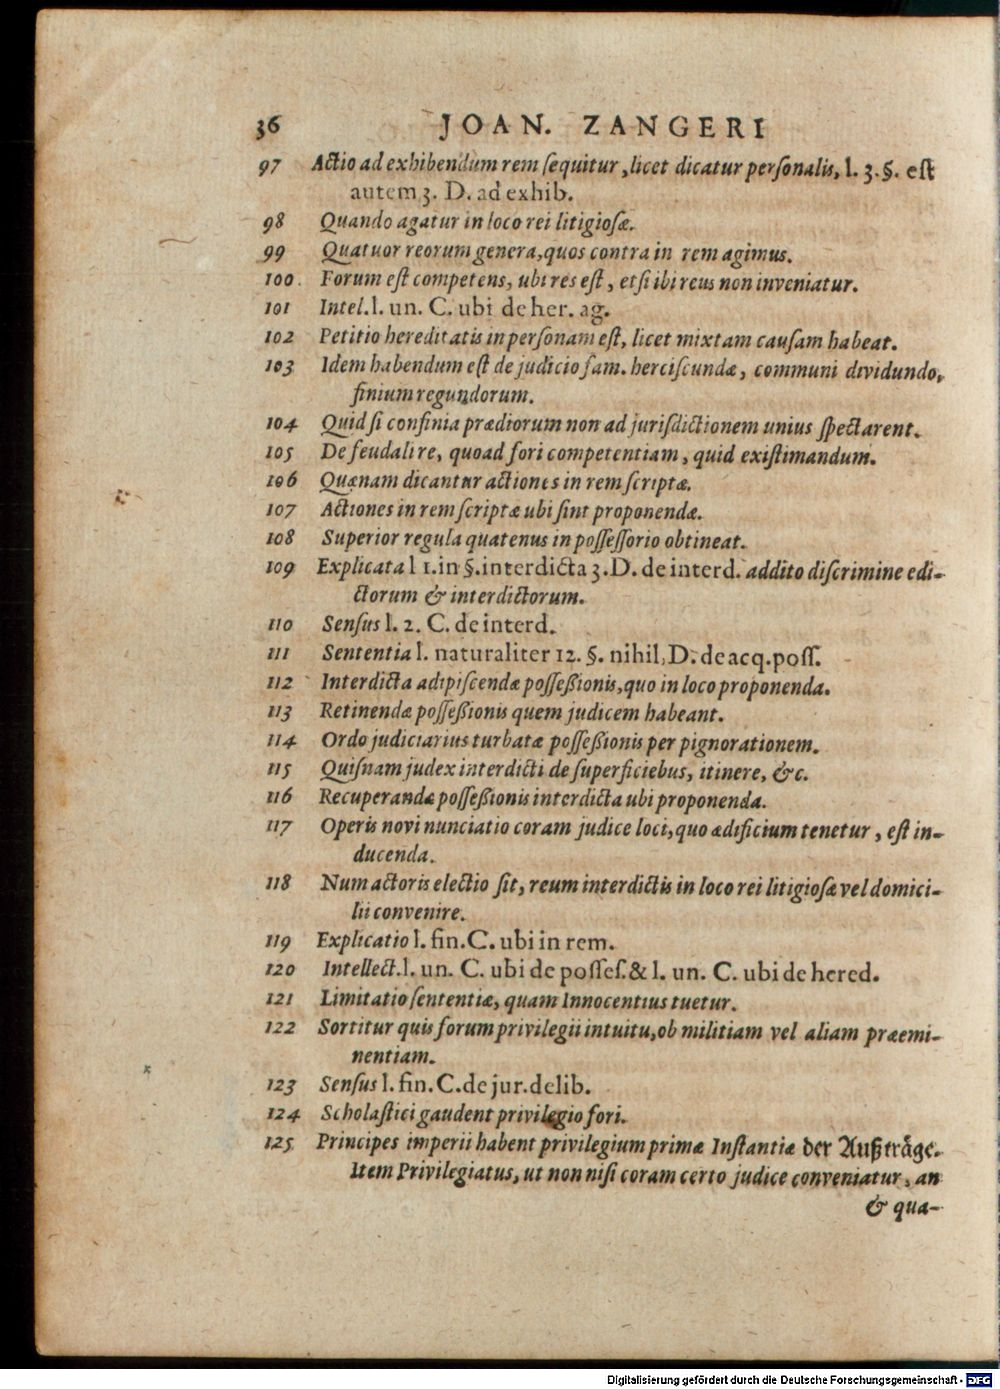 36 JOAN. ZANGERI
97 Actio ad exhibendum rem ſequitur, licet dicatur perſonalis, l. 3. §. eſt
autem 3. D. ad exhib.
98 Quando agatur in loco rei litigioſæ.
99 Quatuor reorum genera, quos contra in rem agimus.
100. Forum eſt competens, ubi res eſt, etſi ibi reus non inveniatur.
101 Intel. l. un. C. ubi de her. ag.
102 Petitio hereditatis in perſonam eſt, licet mixtam cauſam habeat.
103 Idem habendum eſt de judicio fam. herciſcundæ, communi dividundo,
finium regundorum.
104 Quid ſi confinia prædiorum non ad jurisdictionem unius ſpectarent.
105 De feudali re, quoad fori competentiam, quid exiſtimandum.
106 Quænam dicantur actiones in rem ſcriptæ.
107 Actiones in rem ſcriptæ ubi ſint proponendæ.
108 Superior regula quatenus in poſſeſſorio obtineat.
109 Explicata l 1. in §. interdicta 3. D. de interd. addito diſcrimine edi-
ctorum & interdictorum.
110 Senſus l. 2. C. de interd.
111 Sententia l. naturaliter 12. §. nihil, D. de acq. poſſ.
112 Interdicta adipiſcendæ poſſeßionis, quo in loco proponenda.
113 Retinendæ poſſeßionis quem judicem habeant.
114 Ordo judiciarius turbatæ poſſeßionis per pignorationem.
115 Quiſnam judex interdicti de ſuperficiebus, itinere, &c.
116 Recuperandæ poſſeßionis interdicta ubi proponenda.
117 Operis novi nunciatio coram judice loci, quo ædificium tenetur, eſt in-
ducenda.
118 Num actoris electio ſit, reum interdictis in loco rei litigioſæ vel domici-
lii convenire.
119 Explicatio l. fin. C. ubi in rem.
120 Intellect. l. un. C. ubi de poſſeſ. & l. un. C. ubi de hered.
121 Limitatio ſententiæ, quam Innocentius tuetur.
122 Sortitur quis forum privilegii intuitu, ob militiam vel aliam præemi-
nentiam.
123 Senſus l. fin. C. de jur. delib.
124 Scholaſtici gaudent privilegio fori.
125 Principes imperii habent privilegium primæ Inſtantiæ der Außträge.
Item Privilegiatus, ut non niſi coram certo judice conveniatur, an
& qua-
Digitalisierung gefördert durch die Deutsche Forschungsgemeinschaft - DFG